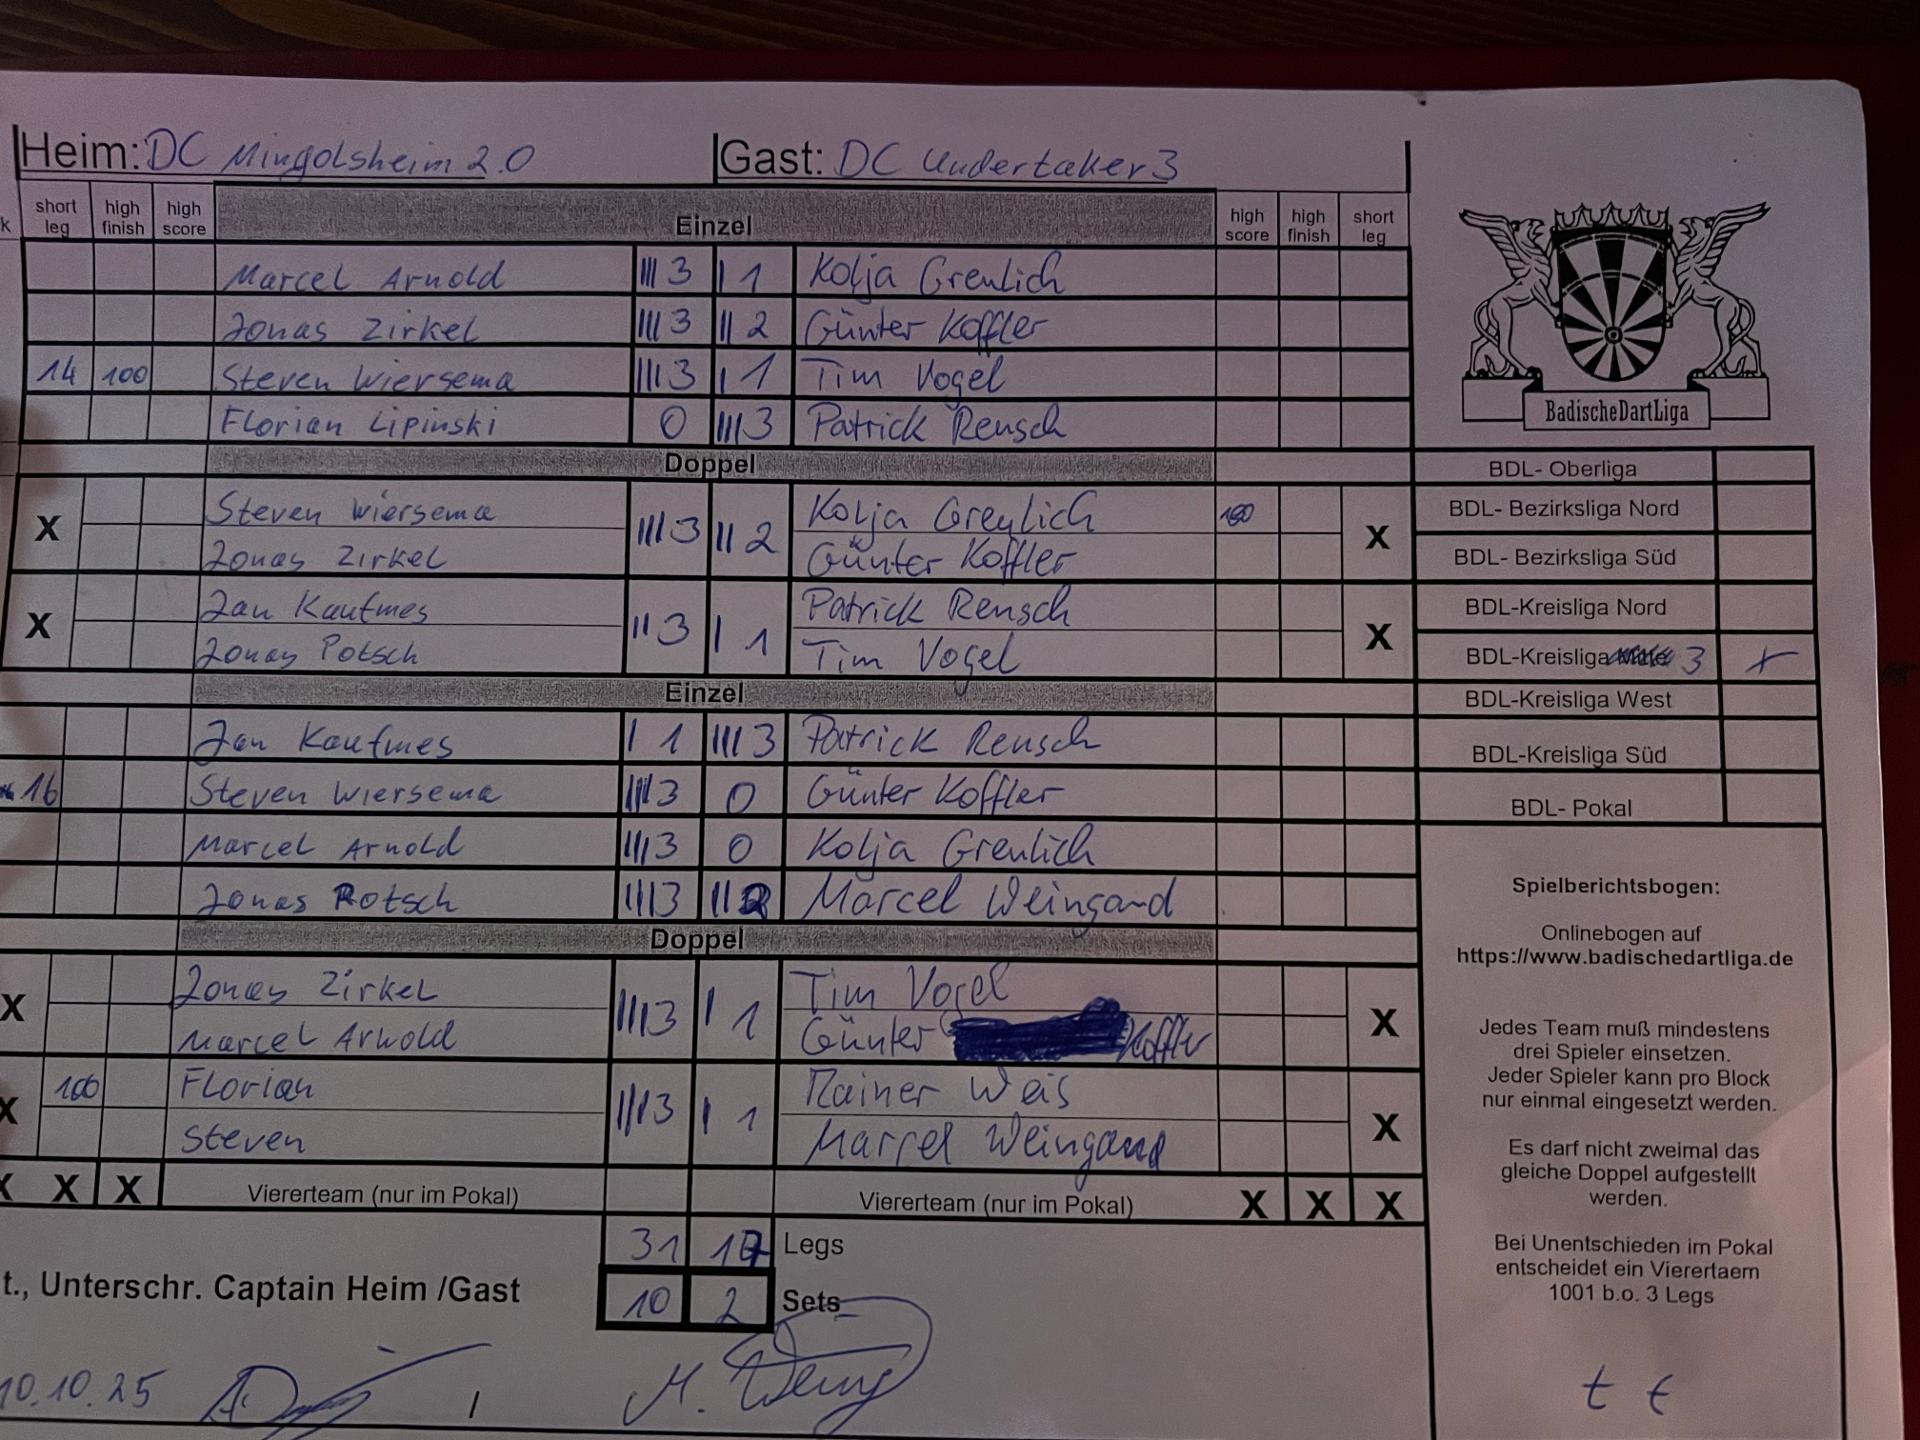 Heim: DC Mingolsheim 2.0 Gast: DC Undertaker 3
k short leg high finish high score Einzel high score high finish short leg
Marcel Arnold ||| 3 | 1 Kolja Greulich
Jonas Zirkel ||| 3 || 2 Günter Koffler
14 100 Steven Wiersema ||| 3 | 1 Tim Vogel
Florian Lipinski 0 ||| 3 Patrick Rensch
Doppel
X Steven Wiersema ||| 3 || 2 Kolja Greulich 180 X
Jonas Zirkel Günter Koffler
X Jan Kaufmes || 3 | 1 Patrick Rensch X
Jonas Potsch Tim Vogel
Einzel
Jan Kaufmes | 1 ||| 3 Patrick Rensch
16 Steven Wiersema ||| 3 0 Günter Koffler
Marcel Arnold ||| 3 0 Kolja Greulich
Jonas Potsch ||| 3 || 2 Marcel Weingand
Doppel
X Jonas Zirkel ||| 3 | 1 Tim Vogel X
Marcel Arnold Günter Koffler
X 100 Florian ||| 3 | 1 Rainer Weis X
Steven Marcel Weingand
X X X Viererteam (nur im Pokal) Viererteam (nur im Pokal) X X X
31 17 Legs
t., Unterschr. Captain Heim /Gast 10 2 Sets
10.10.25 / M.
BadischeDartLiga
BDL- Oberliga
BDL- Bezirksliga Nord
BDL- Bezirksliga Süd
BDL-Kreisliga Nord
BDL-Kreisliga 3 x
BDL-Kreisliga West
BDL-Kreisliga Süd
BDL- Pokal
Spielberichtsbogen:
Onlinebogen auf
https://www.badischedartliga.de
Jedes Team muß mindestens
drei Spieler einsetzen.
Jeder Spieler kann pro Block
nur einmal eingesetzt werden.
Es darf nicht zweimal das
gleiche Doppel aufgestellt
werden.
Bei Unentschieden im Pokal
entscheidet ein Vierertaem
1001 b.o. 3 Legs
t €